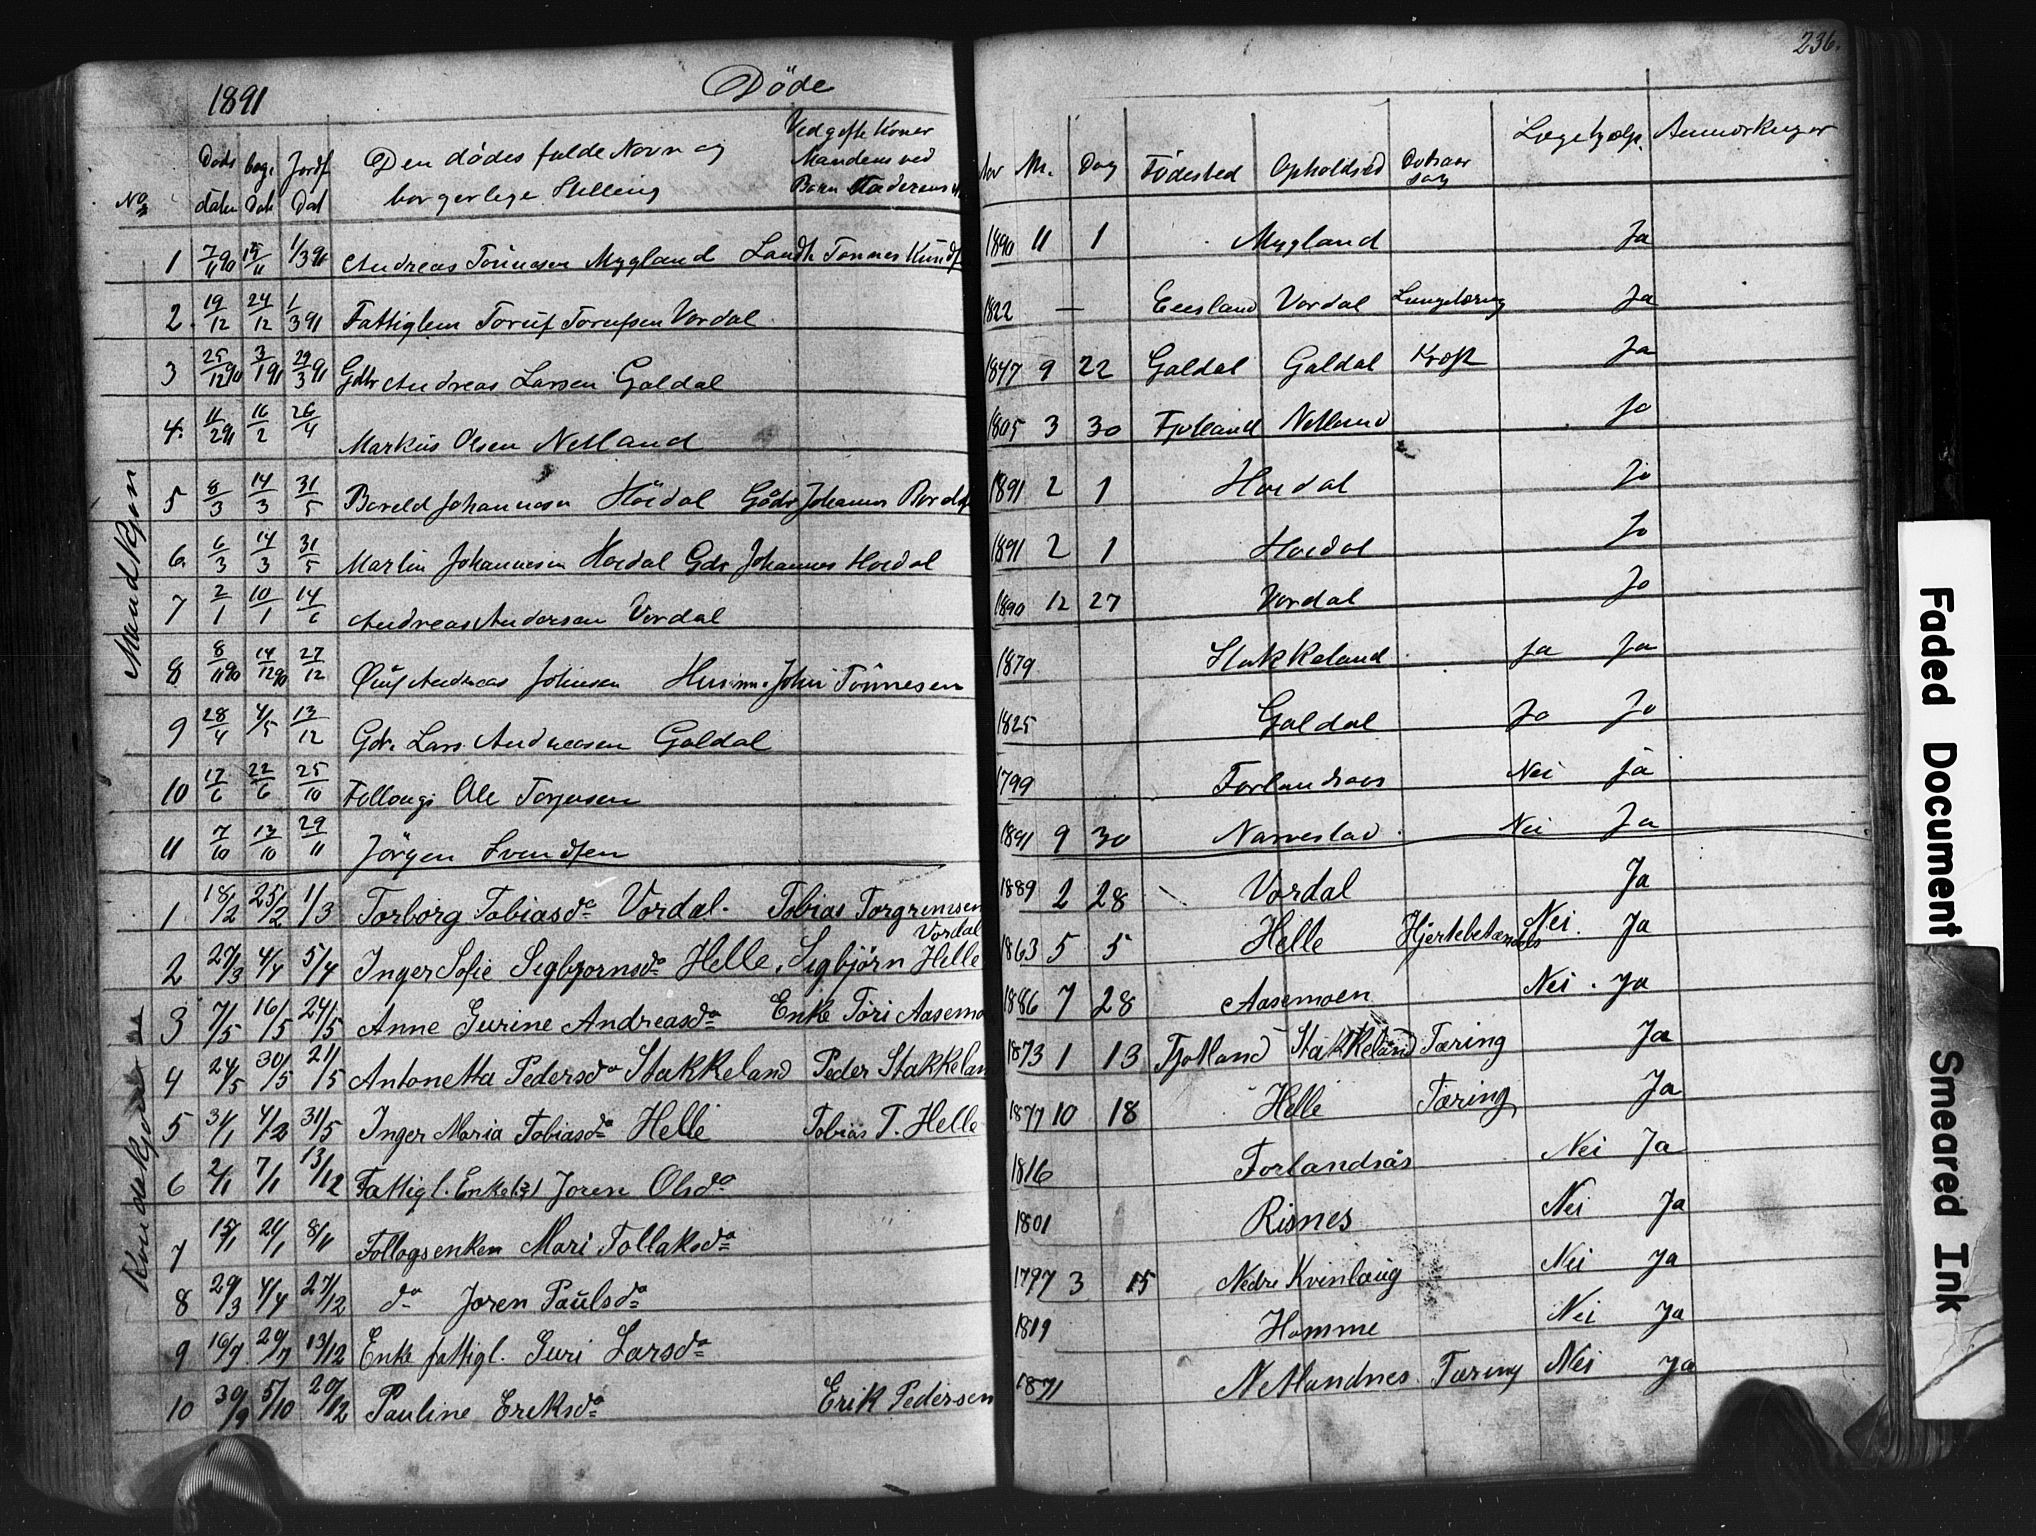 236.
1891 Döde
No Döds daten bag. Dat Jordf Dat Den dödes fulde Navn og borgerlege Stilling Ved gifte Koner Mandens ved Börn Faderens Aar M. Dag Födested Opholdssted Dödsaarsag Lægehjælp. Anmærkninger
Mandkjön
1 7/11 90 15/11 1/3 91 Andreas Tönnesen Mygland Landh Tönnes Knudf 1890 11 1 Mygland Ja
2 19/12 24/12 1/3 91 Fattiglem Toruf Torufsen Vordal 1822 — Eeesland Vordal Ja
3 25/12 90 3/1 91 29/3 91 Gdbr Andreas Larsen Galdal 1847 9 22 Galdal Galdal Kræft Ja
4. 11/2 91 16/2 26/4 Markus Olsen Netland 1805 3 30 Fjotland Netland Ja
5 8/3 14/3 31/5 Bereld Johannesen Höidal Gdbr Johannes 1891 2 1 Hoidal Ja
6 6/3 14/3 31/5 Martin Johannesen Hoidal Gdr Johannes Hoidal 1891 2 1 Hoidal Ja
7 2/1 10/1 14/6 Andreas Andersen Vordal 1890 12 27 Vordal Ja
8 8/11 90 14/12 90 27/12 Andreas Johnsen Husm. John Tönnesen 1879 Stakkeland Ja Ja
9 28/4 4/5 13/12 Gdr. Lars Andreasen Galdal 1825 Galdal Ja Ja
10 17/6 22/6 25/10 Follaugs Ole Torjusen 1799 Forlandsaas Nei ja
11 7/10 13/10 29/11 Jörgen Svendsen 1891 9 30 Narvestad Nei Ja
Kvindekjön
1 18/2 25/2 1/3 Torborg Tobiasda Vordal. Tobias Torgrimsen Vordal 1889 2 28 Vordal Ja
2 27/3 4/4 5/4 Inger Sofie Segbjornsda Helle, Segbjörn Helle 1863 5 5 Helle Hjertebetændels Nei. Ja
3 7/5 16/5 24/5 Anne Gurine Andreasda Enke Töri Aasemo 1886 7 28 Aasemoen Nei. Ja
4 24/5 30/5 21/5 Antonetta Pedersda Stakkeland Peder Stakkelan 1873 1 13 Fjotland Stakkeland Tæring Ja
5 31/1 4/2 31/5 Inger Maria Tobiasda Helle Tobias T. Helle 1877 10 18 Helle Tæring Ja
6 2/1 7/1 13/12 Fattigl. Enke Joren Olsda 1816 Forlandsås Nei Ja
7 15/1 24/1 8/11 Follogsenken Mari Tollaksda 1801 Risnes Nei Ja
8 29/3 4/4 27/12 do Joren Paulsda 1797 3 15 Nedre Kvinlaug Nei Ja
9 16/7 29/7 13/12 Enke fattigl. Guri Larsda 1819 Homme Nei Ja
10 30/9 5/10 20/12 Pauline Eriksda Erik Pedersen 1871 Netlandnes Tæring Nei Ja
Faded Document
Smeared Ink